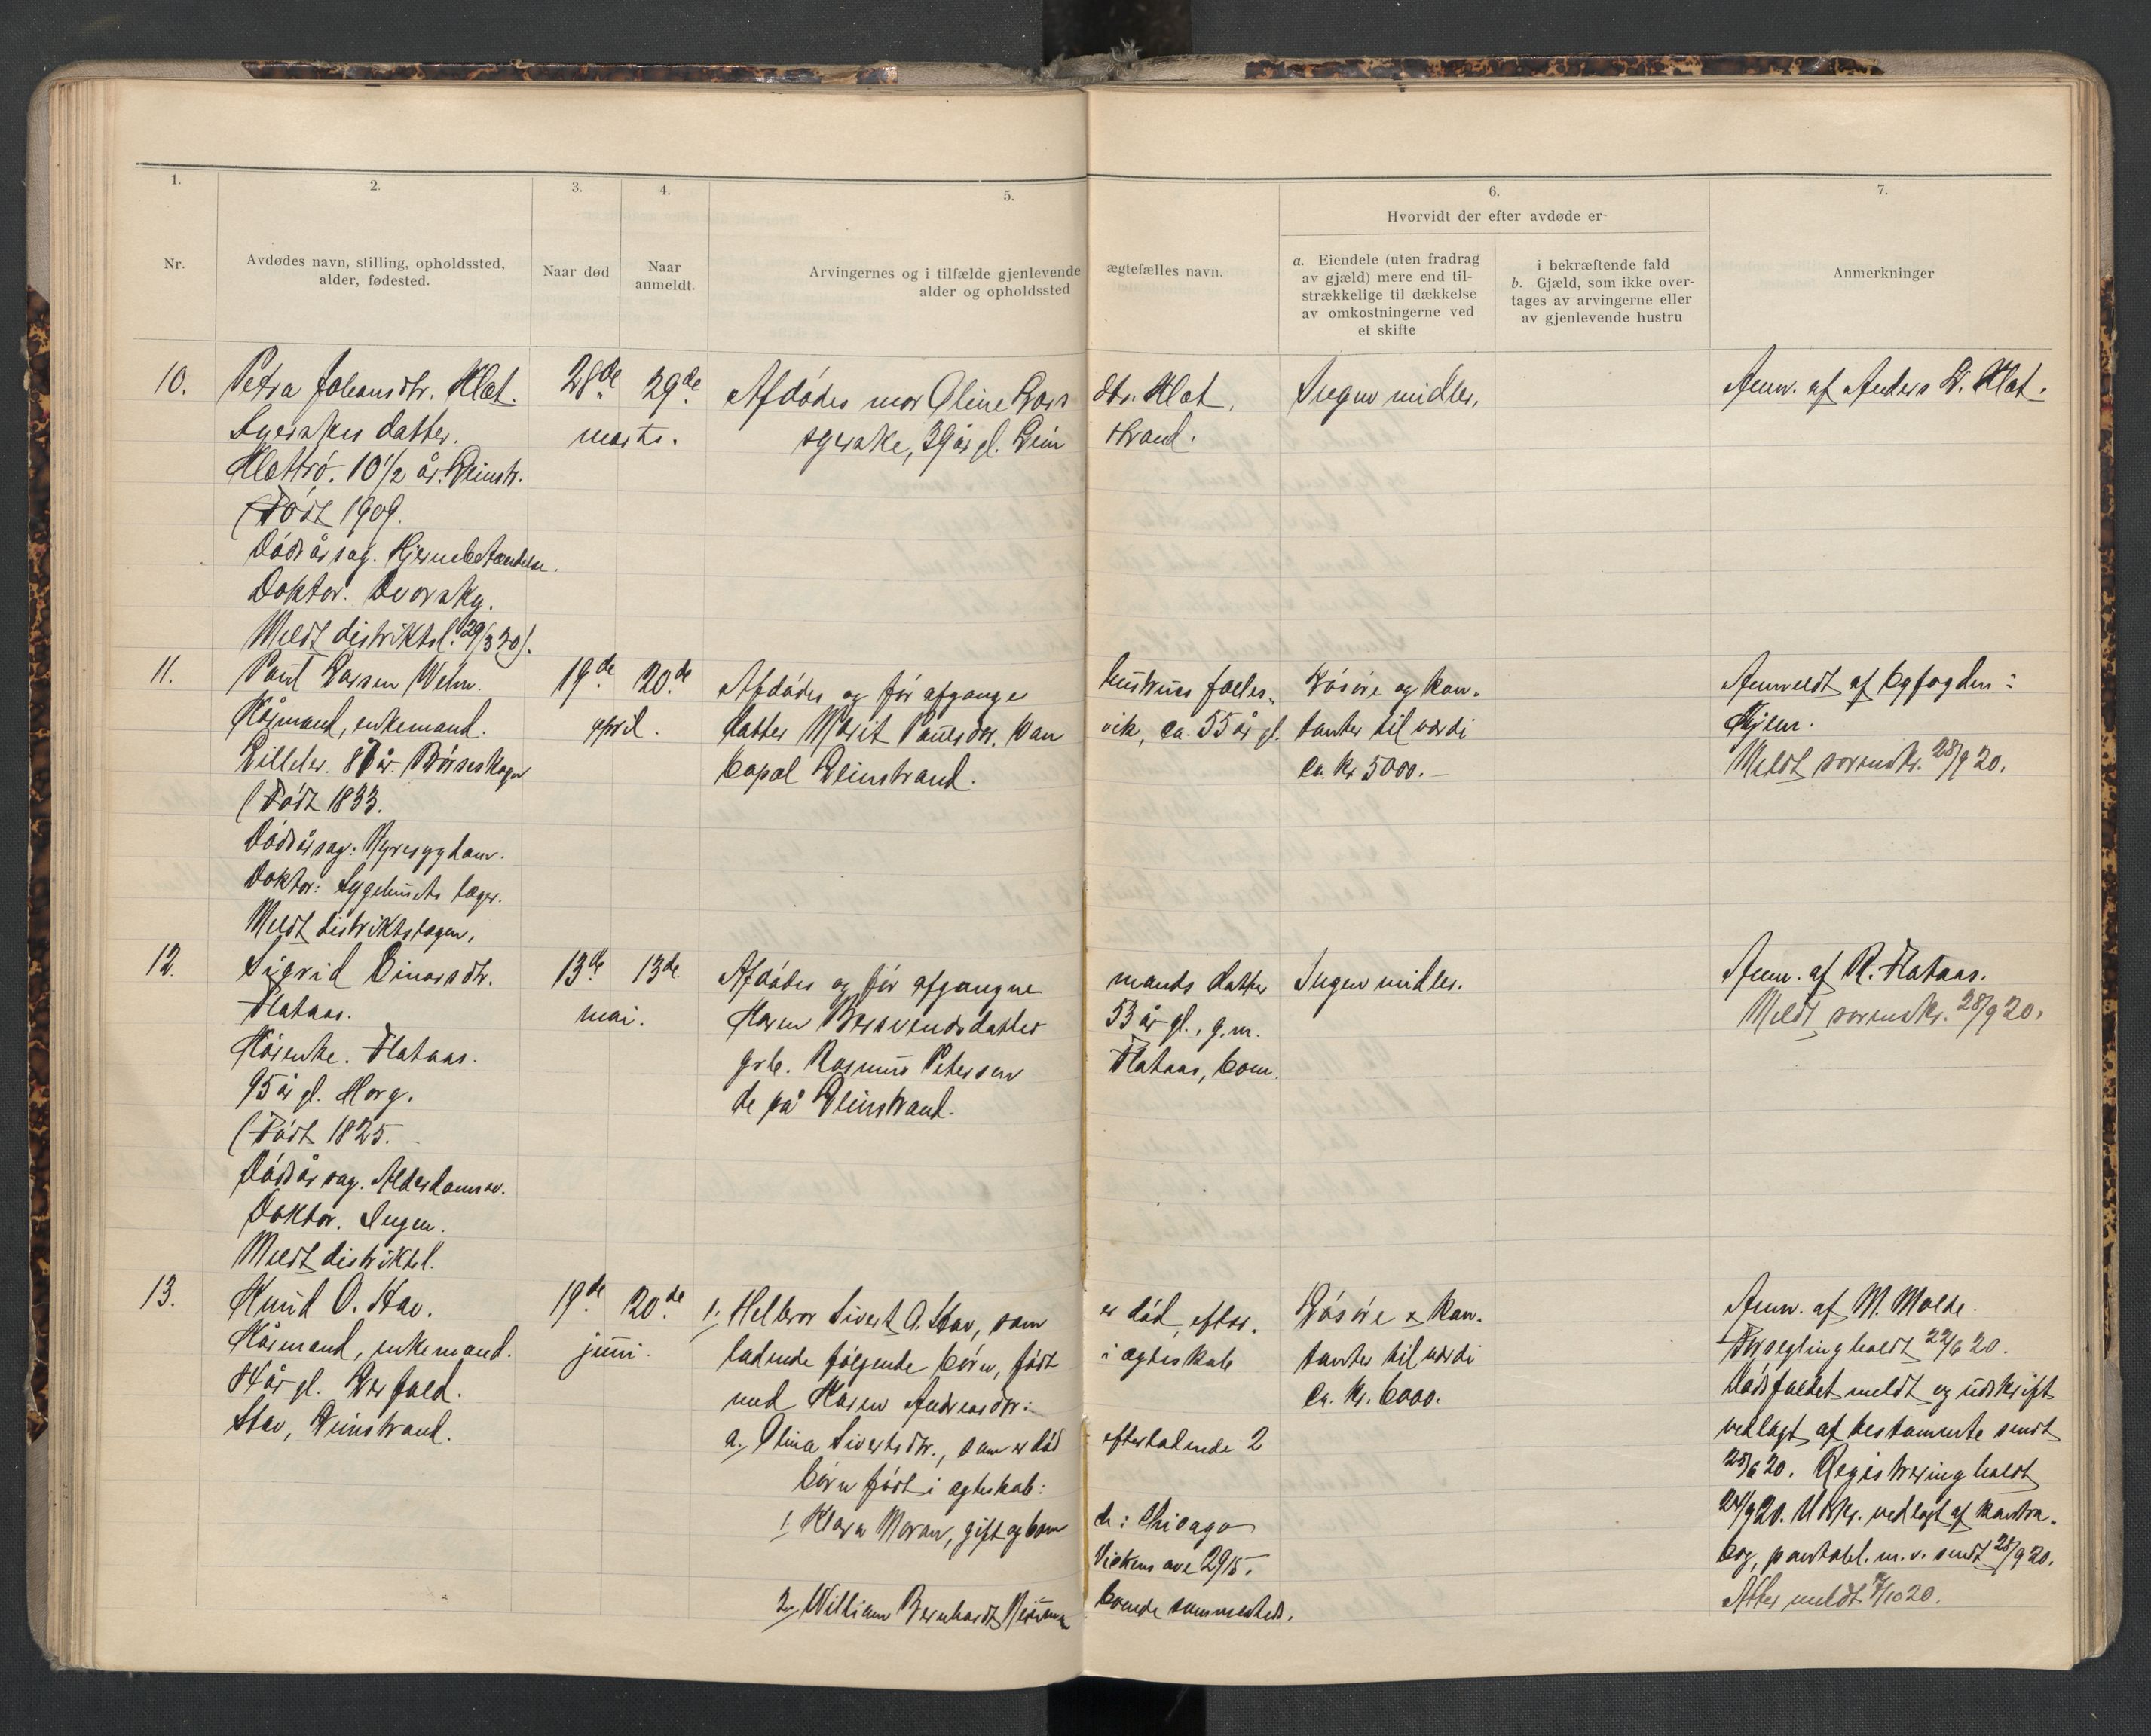 1.
2.
3.
4.
5.
6.
7.
Nr.
Avdødes navn, stilling, opholdssted,
alder, fødested.
Naar død
Naar
anmeldt.
Arvingernes og i tilfælde gjenlevende ægtefælles navn.
alder og opholdssted
Hvorvidt der efter avdøde er
a. Eiendele (uten fradrag
av gjæld) mere end til-
strækkelige til dækkelse
av omkostningerne ved
et skifte
i bekræftende fald
b. Gjæld, som ikke over-
tages av arvingerne eller
av gjenlevende hustru
Anmerkninger
10.
Petra Johansdtr. Klæt.
datter.
Klættrø. 10½ år. Leinstr.
(Født 1909.
Dødsårsag. Hjernebetændelse.
Doktor. Dvorsky.
Meldt distriktsl. 29/3 20).
28de
29de
marts.
Afdødes mor Oline Lars dtr. Klæt,
39 år gl. Lein strand.
Ingen midler.
Anm. af Anders L. Klæt.
11.
Paul Larsen
Kårmand, enkemand.
87 år. Børseskogn
(Født 1833.
Dødsårsag: Nyresygdom.
Doktor: Sygehusets læge.
Meldt distriktslægen.
19de
20de
april.
Afdødes og før afgangne hustrus fælles
datter Marit Paulsdtr. Van vik, ca. 55 år gl.
bopæl Leinstrand.
Løsøre og kon-
tanter til værdi
ca. kr 5000.-
Anmeldt af bygfogden:
Meldt sorenskr. 28/9 20.
12.
Sigrid Einarsdtr.
Flataas.
Kårenke. Flataas.
95 år gl. Horg.
(Født 1825.
Dødsårsag. Alderdomssv.
Doktor. Ingen.
Meldt distriktsl.
13de
13de
mai.
Afdødes og før afgangne mands datter
Karen Bersvendsdatter 53 år gl., g.m.
grb. Rasmus Petersen Flataas, boen
de på Leinstrand.
Ingen midler.
Anm. af R. Flataas.
Meldt sorenskr. 28/9 20.
13.
Knud O. Stav.
Kårmand, enkemand.
år gl.
Stav, Leinstrand.
19de
20de
juni.
1. Helbror Sivert O. Stav, som er død, efter-
ladende følgende børn, født i ægteskab
med Karen Andreasdtr:
a. Olina Sivertsdtr., som er død efterladende 2
børn født i ægteskab:
1. Klara Moran, gift og boen de i Chicago
ave 2915.
2. William Bernhardt boende sammesteds.
Løsøre & kon-
tanter til værdi
ca. kr. 6000.
Anm. af M. Molde.
Forsegling holdt 22/6 20.
Dødsfaldet meldt og udskrift
vedlagt af testamente sendt
25/6 20. Registrering holdt
24/9 20. Udskr. vedlagt af kontra-
bog, m.v. sendt 28/9 20.
Atter meldt /10 20.